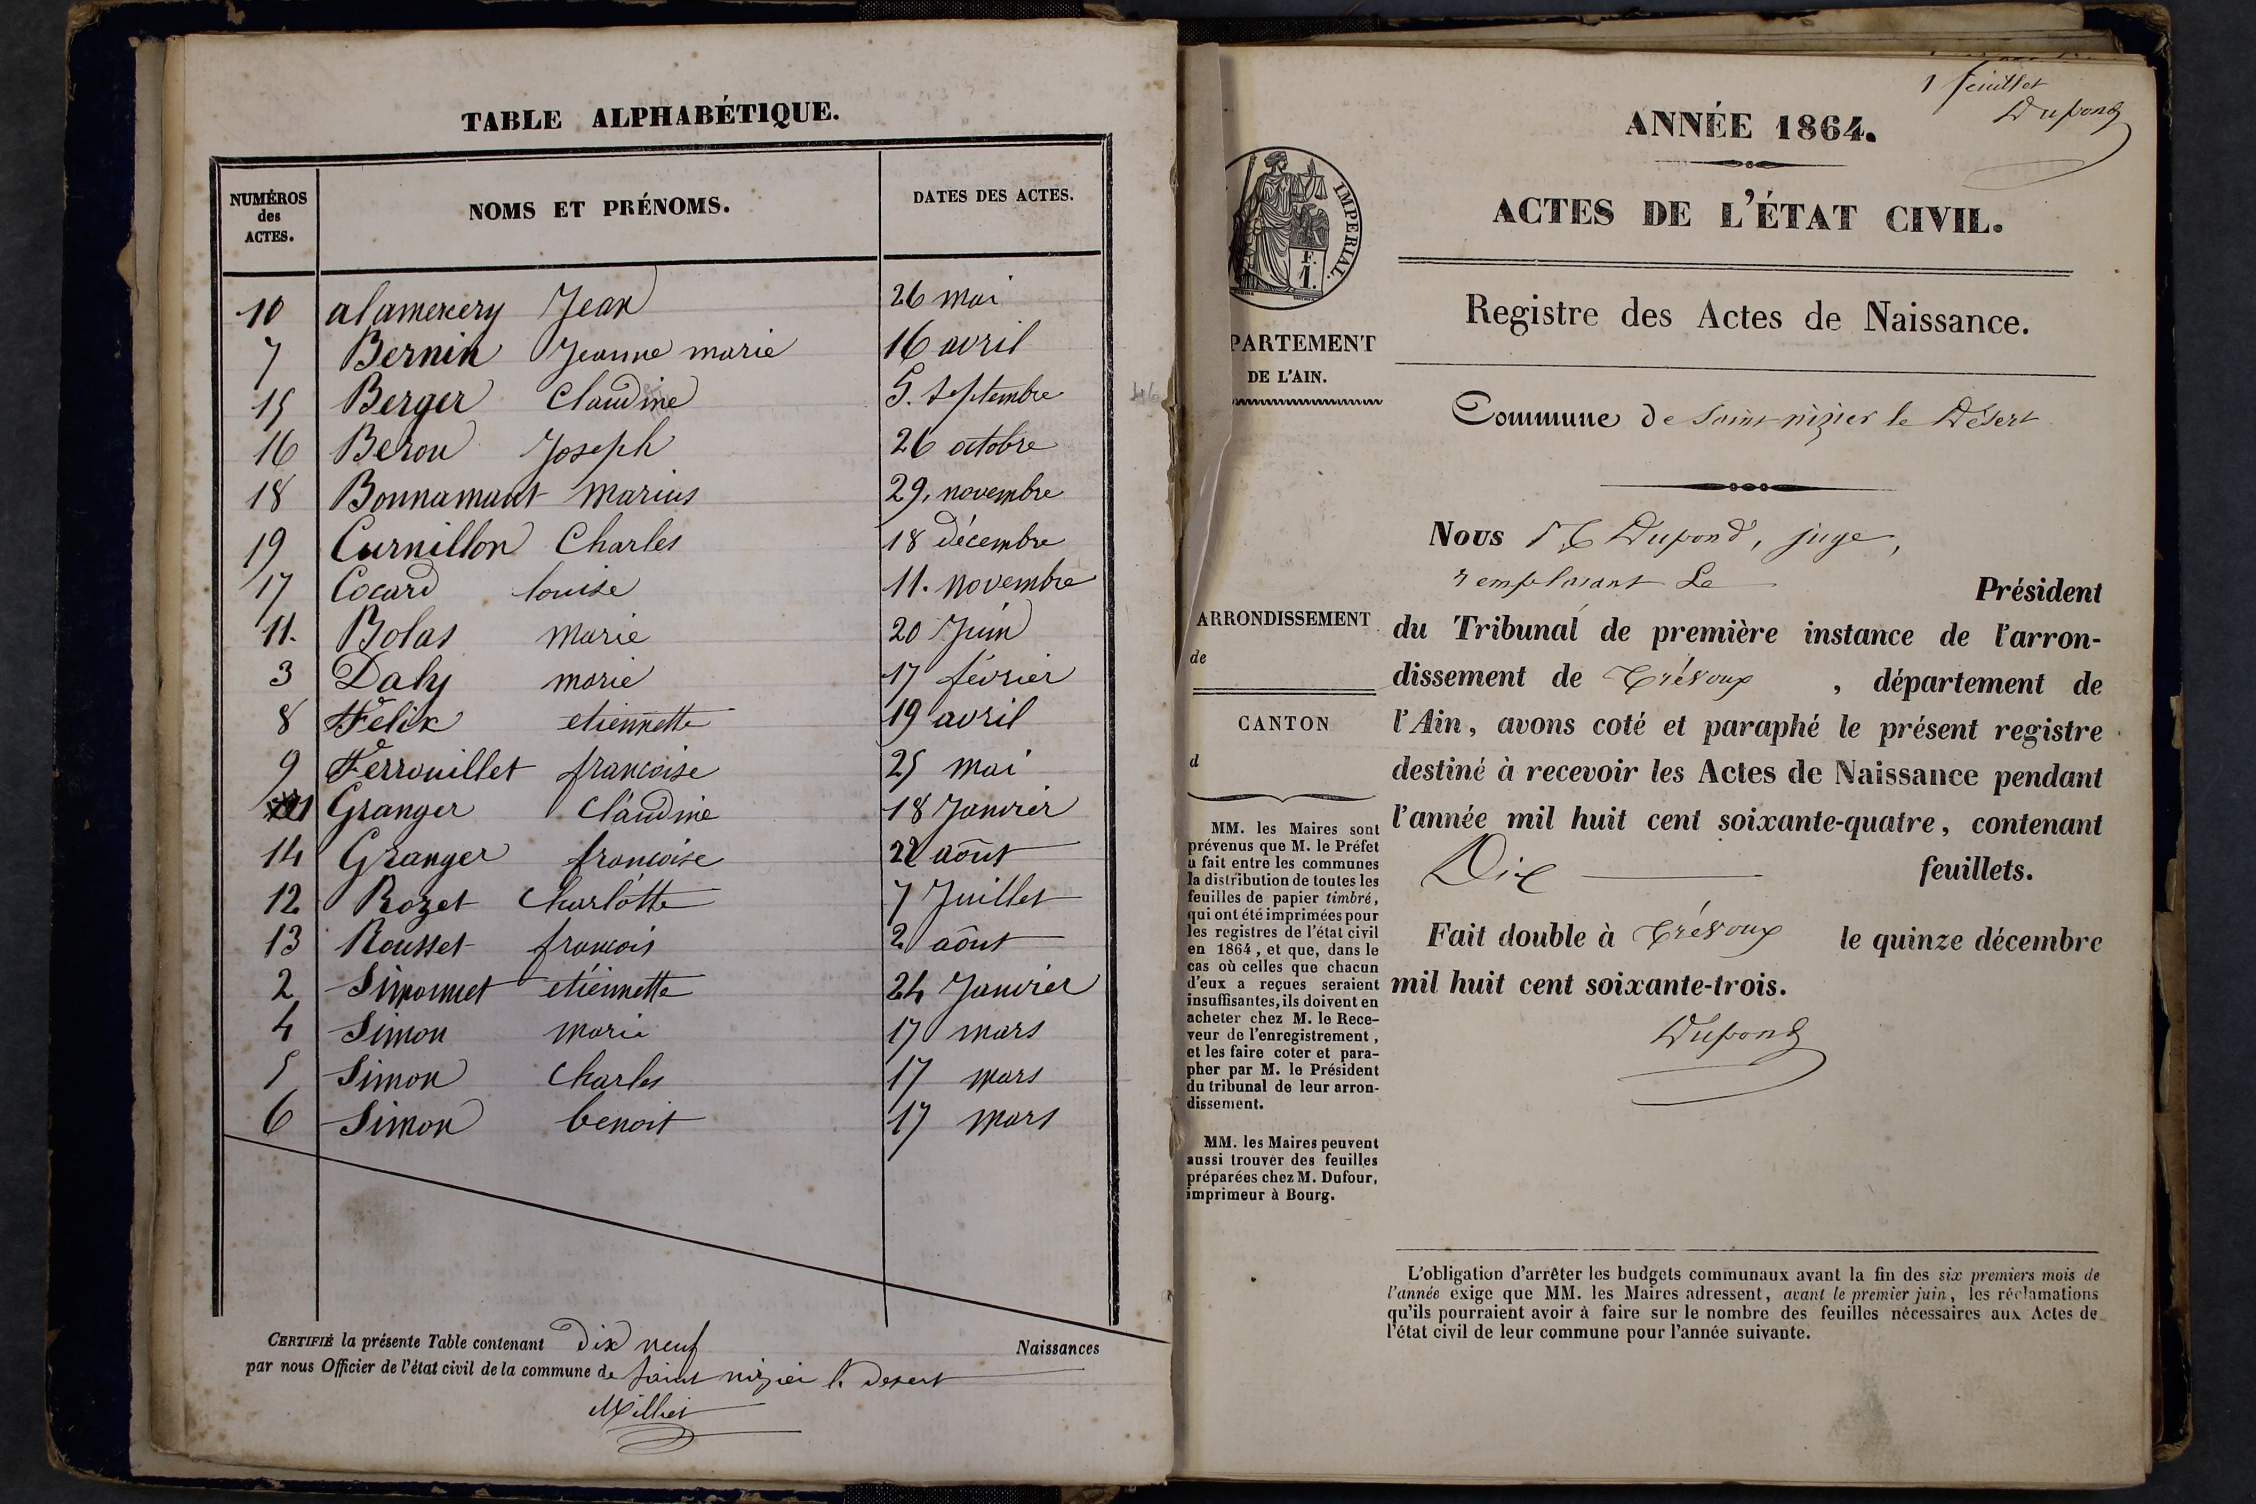 TABLE ALPHABÉTIQUE.
NUMÉROS des ACTES. NOMS ET PRÉNOMS. DATES DES ACTES.
10 alamercery Jean 26 mai
7 Bernin Jeanne marie 16 avril
15 Berger Claudine 5. septembre
16 Berou Joseph 26 octobre
18 Bonnamant Marius 29, novembre
19 Curnillon Charles 18 décembre
17 Cocard louise 11. novembre
11. Bolas marie 20 Juin
3 Daly marie 17 février
8 Félix etiennette 19 avril
9 Ferrouillet francoise 25 mai
1 Granger Claudine 18 Janvier
14 Granger francoise 22 août
12 Rozet Charlotte 7 Juillet
13 Rousset francois 2 août
2 Simonnet etiennette 24 Janvier
4 Simon marie 17 mars
5 Simon Charles 17 mars
6 Simon benoit 17 mars
CERTIFIÉ la présente Table contenant Dix neuf Naissances
par nous Officier de l'état civil de la commune de Saint nizier le Desert
Milliet
1 feuillet
Dupond
ANNÉE 1864.
ACTES DE L'ÉTAT CIVIL.
IMPERIAL.
F.
1.
Registre des Actes de Naissance.
PARTEMENT
DE L'AIN.
Commune de Saint-nizier le Désert
Nous Dupond, juge,
remplacant Le Président
du Tribunal de première instance de l'arron-
dissement de Trévoux, département de
l'Ain, avons coté et paraphé le présent registre
destiné à recevoir les Actes de Naissance pendant
l'année mil huit cent soixante-quatre, contenant
Dix feuillets.
Fait double à Trévoux le quinze décembre
mil huit cent soixante-trois.
Dupond
ARRONDISSEMENT
de
CANTON
d
MM. les Maires sont
prévenus que M. le Préfet
a fait entre les communes
la distribution de toutes les
feuilles de papier timbré,
qui ont été imprimées pour
les registres de l'état civil
en 1864, et que, dans le
cas où celles que chacun
d'eux a reçues seraient
insuffisantes, ils doivent en
acheter chez M. le Rece-
veur de l'enregistrement,
et les faire coter et para-
pher par M. le Président
du tribunal de leur arron-
dissement.
MM. les Maires peuvent
aussi trouver des feuilles
préparées chez M. Dufour,
imprimeur à Bourg.
L'obligation d'arrêter les budgets communaux avant la fin des six premiers mois de
l'année exige que MM. les Maires adressent, avant le premier juin, les réclamations
qu'ils pourraient avoir à faire sur le nombre des feuilles nécessaires aux Actes de
l'état civil de leur commune pour l'année suivante.